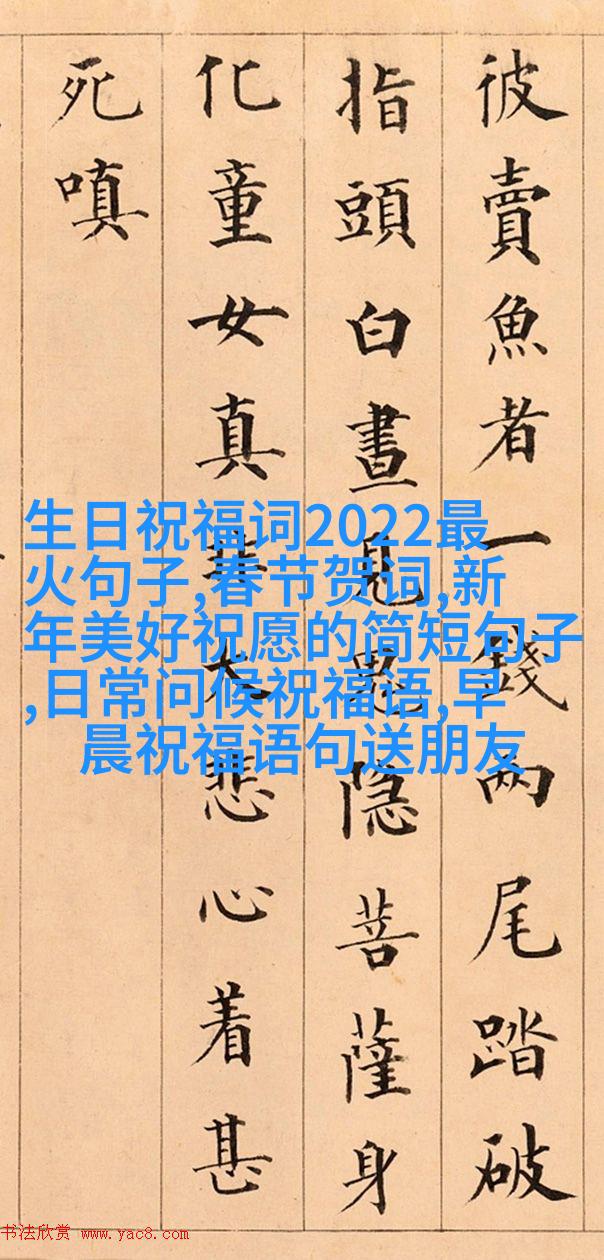 彼賣魚者一錢两尾踏破
指頭白晝見隐菩薩身
化童女真大悲心着甚
死嗔
生日祝福词2022最
火句子,春节贺词,新
年美好祝愿的简短句子
,日常问候祝福语,早
晨祝福语句送朋友
书法欣赏 www.yac8.com